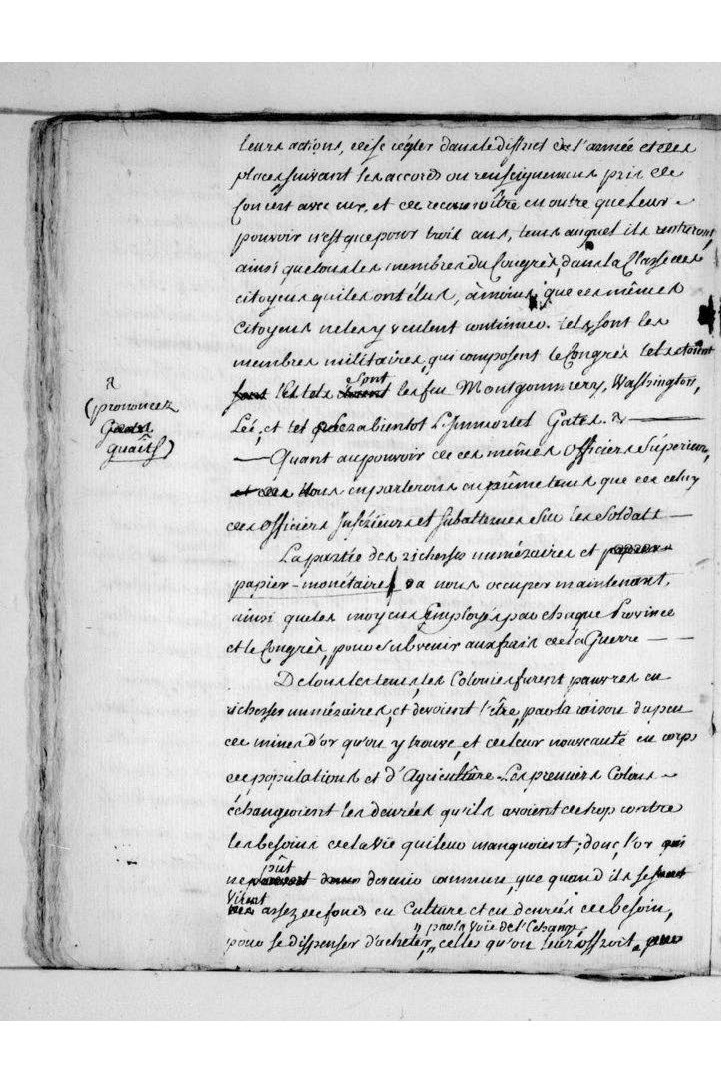 leurs actions, et se régler dans le district de l'armée et des
places suivant les accords ou renseignemens pris de
Concert avec eux, et de reconnoître en outre que leur
pouvoir n'est que pour trois ans, tems auquel ils rentreront,
ainsi que tous les membres du Congrès, dans la Classe des
citoyens qui les ont élus, à moins que ces mêmes
Citoyens ne les y veulent continuer. tels sont les
membres militaires, qui composent le Congrès tels étoient
sont
les tels les feu Montgommery, Washington,
(prononcez
guaîts)
Lée, et tel sera bientot l'Immortel Gates.
Quant au pouvoir de ces mêmes officiers Supérieurs,
nous en parlerons en même tems que de celuy
des officiers Inférieurs et Subalternes Sur les Soldats
La partie des richesses numéraires et
papier-monétaire, va nous occuper maintenant,
ainsi que les moyens Employés par chaque Province
et le Congrès, pour Subvenir aux frais de la Guerre
De tous les tems, les Colonies furent pauvres en
richesses numéraires, et devoient l'être, par la raison du peu
de mines d'or qu'on y trouve, et de leur nouveauté en corps
de populations et d'Agriculture. Les premiers Colons
échangeoient les denrées qu'ils avoient de trop contre
les besoins de la vie qui leur manquoient; donc, l'or
pût
ne devenir commun, que quand ils se
virent
assez de fonds en Culture et en denrées de besoin,
par la Voie de l'Echange,
pour se dispenser d'acheter, celles qu'on leur offroit.